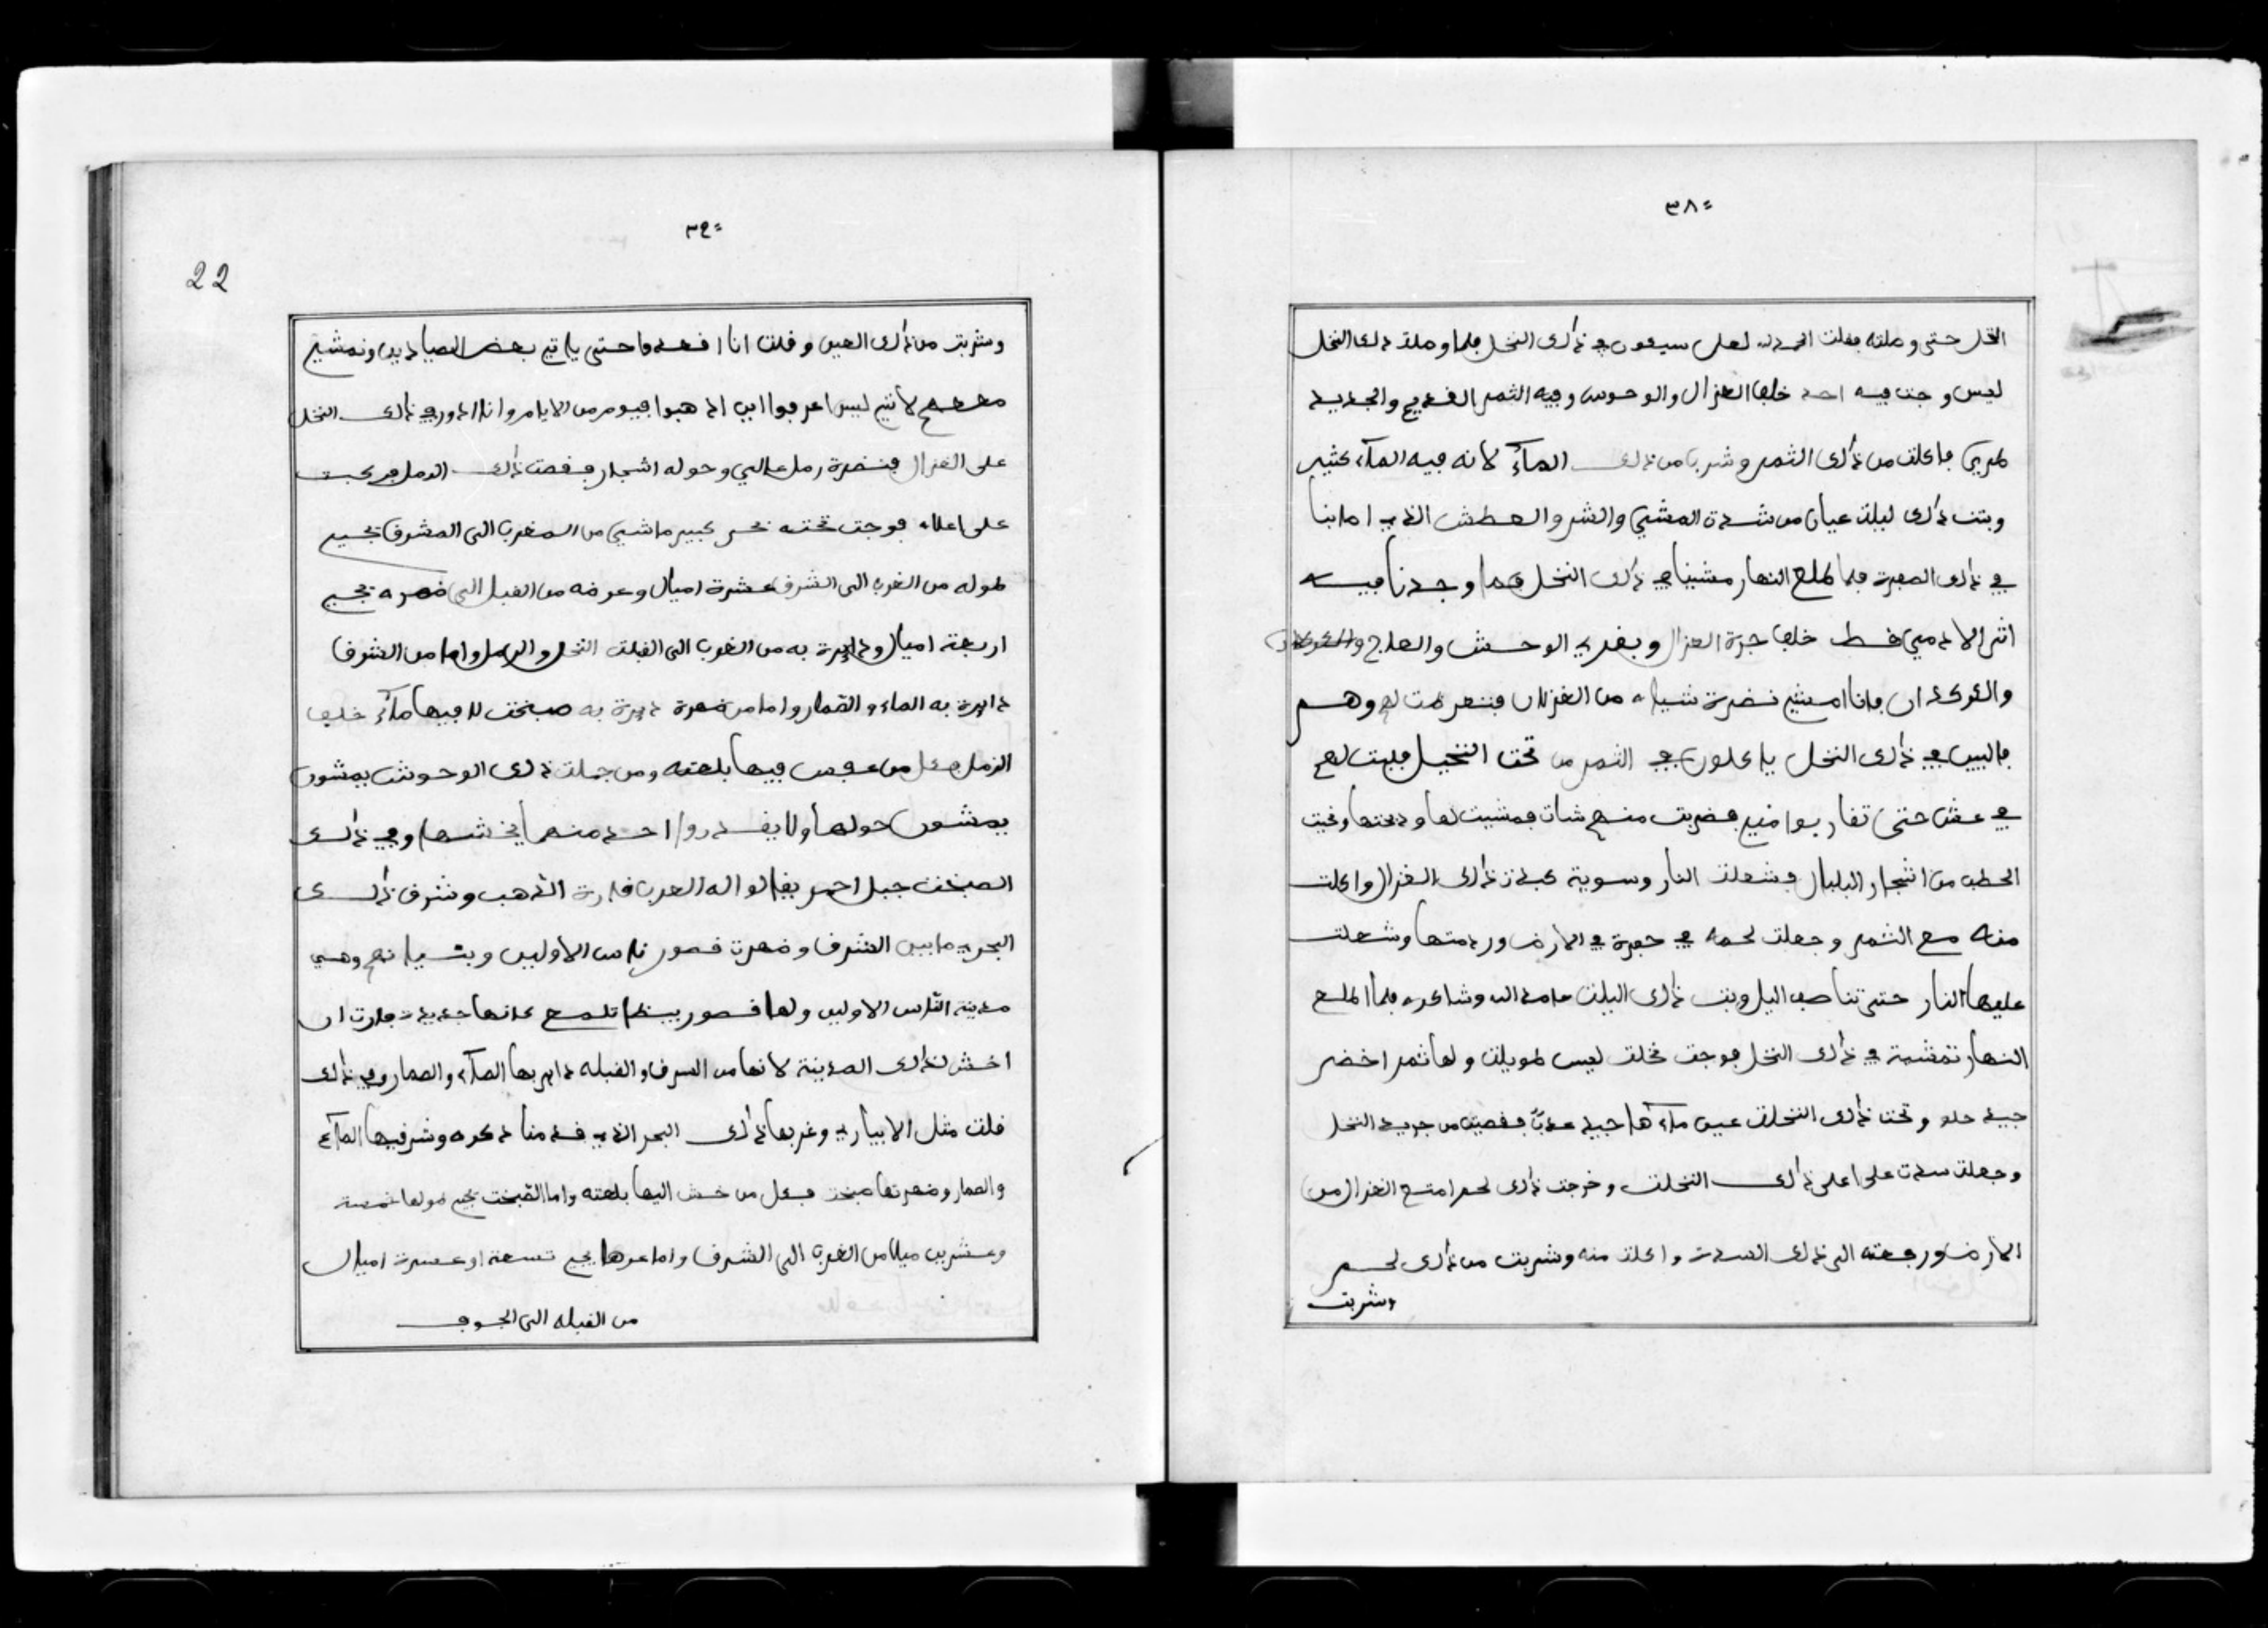 ٣٨=
النخل حتى وصلته فقلت الحمد لله لعلى سيعون في ذٰلك النخل فلما وصلت ذلك النخل
ليس وجت فيه احد خلف الغزال والوحوش وفيه الثمر القديم والجديد
طري فاكلت من ذٰلك الثمر وشربا من ذلك المآء لانه فيه المآء كثير
وبتت ذٰلك ليلت عيان من شدة المشي والشر والعطش الذي اصابنا
في ذٰلك الصفرة فلما طلع النهار مشينا في ذٰلك النخل فما وجدنا فيه
اثر الادمي فط خلف جرة الغزال وبقري الوحش والعلاج
والكركدان فانا امشي نضرة شياه من الغزلان فتعرضت لهم وهم
فالبين في ذٰلك النخل ياكلون في الثمر من تحت النخيل فليت لهم
في عش حتى تقاربوا مني فضربت منهم شات فمشيت لها وذبحتها وجبت
الحطب من اشجار البلبال فشعلت النار وسوية كبدت ذٰلك الغزال واكلت
منه مع الثمر وجعلت لحمه في حفرة في الارض وردمتها وشعلت
عليها النار حتى تناصف اليل وبت ذٰلك اليلت حامد الله وشاكره فلما اطلع
النهار تمشية في ذٰلك النخل فوجت نخلت ليس طويلت ولها ثمر اخضر
جيد حلو وتحت ذٰلك النخلت عين مآءها جيد عذبٌ فقصيت من جريد النخل
وجعلت سدت على اعلى ذٰلك النخلت وخرجت ذٰلك لحم امتع الغزال من
الارض ورجعته الى ذلك السدت واكلت منه وشربت من ذٰلك لحم
وشربت
٣٩=
22
وشربت من ذٰلك العين وقلت انا افعد ها حتى ياتي بعض الصيادين ونمشي
معهم لانني ليس اعرفوا اين اذهبوا فيوم من الايام وانا اذور في ذٰلك النخل
على الغزال فنضرة رمل عالي وحوله اشجار فقصت ذٰلك الرمل فركبت
على اعلاه فوجت تحته بحر كبير ماشي من المغرب الى المشرق يجيي
طوله من الغرب الى الشرق عشرة اميال وعرضه من القبل الى ضهره يجيي
اربعة اميال ودايرة به من الغرب الى القبلت النخل والرمل واما من الشرق
دايرة به الماء والقمار واما من ضهرة ديرة به صبخت لا فيها مآء خلف
الرمل فكل من عفس فيها بلعته ومن جملت ذٰلك الوحوش يمشون
يمشون حولها ولا يقدروا احد منهم يخشها وفي ذٰلك
الصبخت جبل احمر يقالوا اله العرب فارة الذهب وشرق ذٰلك
البحري مابين الشرق وضهرت قصور ناس الاولين وبتسيانهم وهي
مدينة النّاس الاولين ولها قصور بيضا تلمع كانها جديدت فارت ان
اخش لذٰلك المدينة لانها من السرق والقبله داير بها المآء والصمار وفي ذٰلك
قلت مثل الابياري وغربها ذٰلك البحر الذي قدمنا ذكره وشرفيها المآء
والصمار وضهرتها صبخت فكل من خش اليها بلعته واما الصّبخت يجي طولها خمسة
وعشرين ميلا من الغرب الى الشرق واما عرضها يجي تسعة او عسرة اميال
من القبله الى الجوف